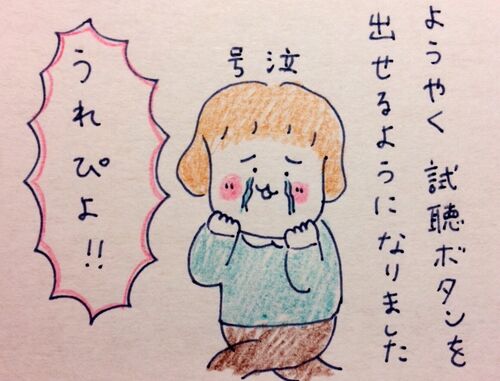 ようやく 試聴ボタンを
出せるようになりました
号泣
うれぴよ!!